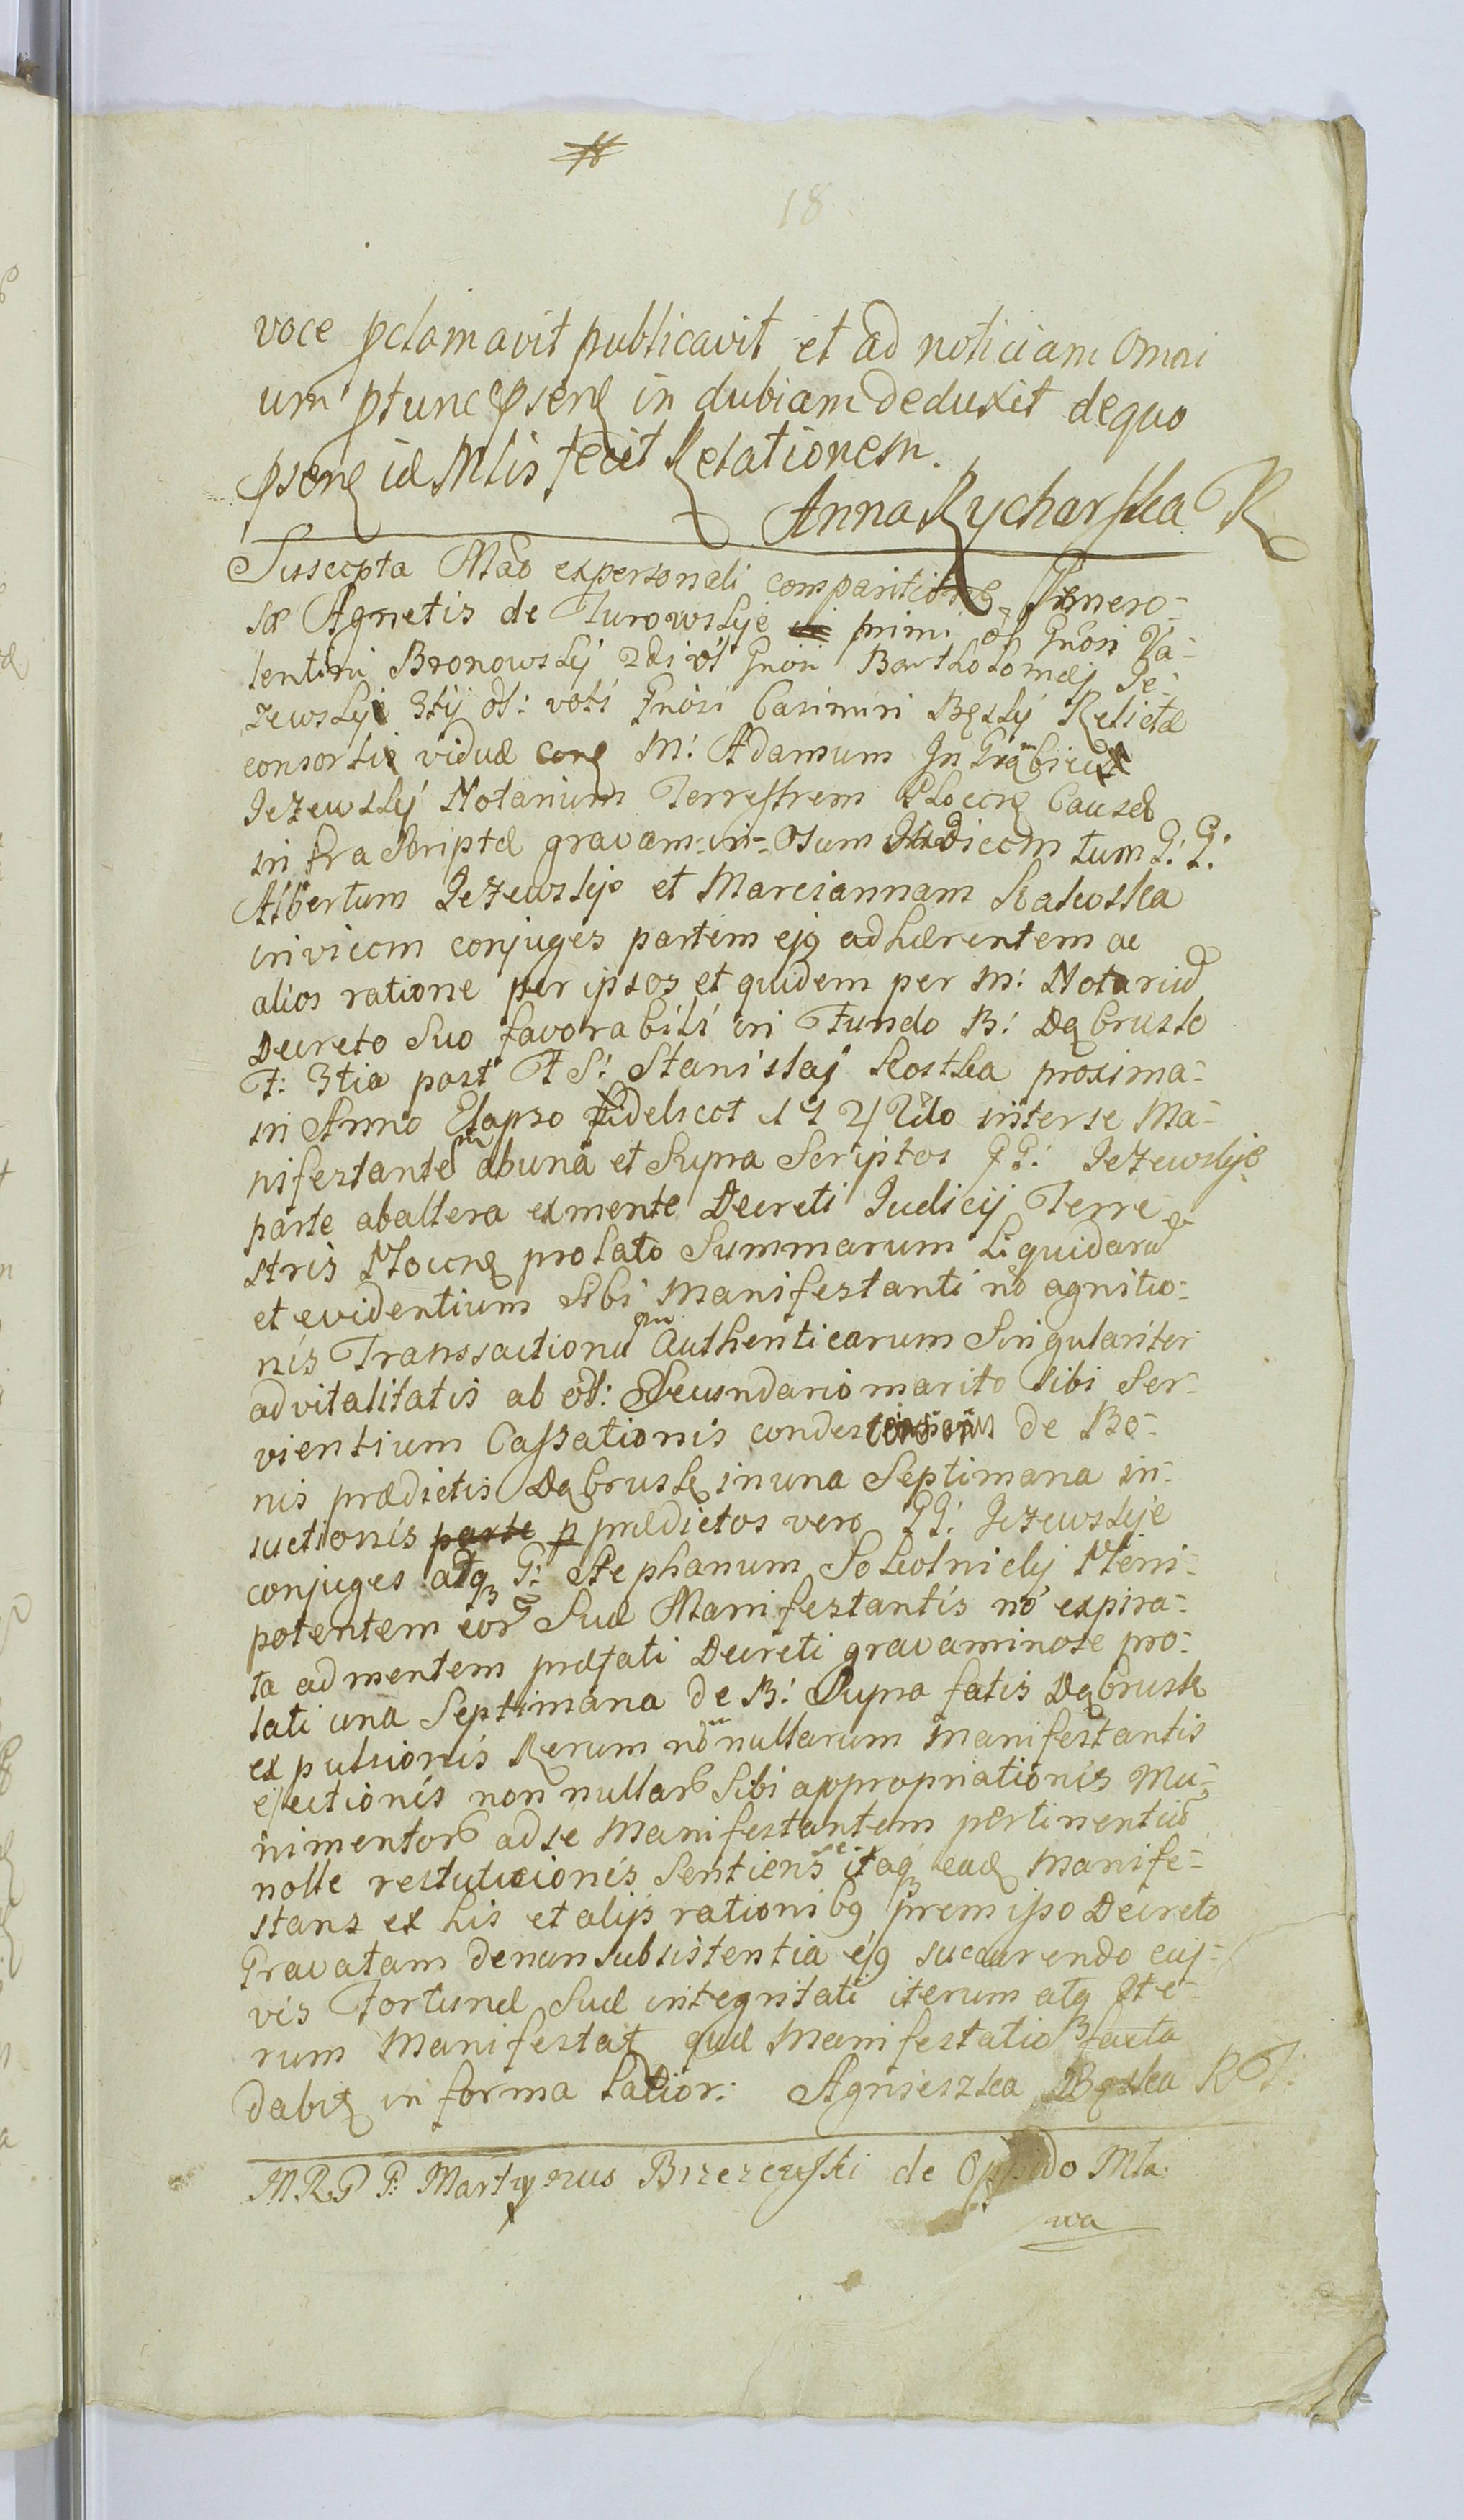 18
voce pclamavit publicavit et ad noticiam Omni
um ptunc psen in dubiam deduxit de quo
psen id Mtis fecit Relationem.
Anna Rycharska R
Suscepta Mão expersonali comparitione Genero-
sæ Agnetis de Turowskie primi ol Gnosi Va-
lentini Bronowskÿ 2di ol Gnosi Bartholomæj Je-
zewskÿ 3tij ol: voti Gnosi Casimiri Bęskÿ Relictæ
consortis viduæ con M: Adamum In Grabiecz
Jezewskÿ Notarium Terrestrem Plocen Causæ
in fra Scriptæ gravam-in-osum Judicem tum G: G:
Albertum Jezewskje et Mareiannam Kakoska
invicem conjuges partem ejq adhærentem ac
alios ratione per ipsos et quidem per M: Notariu
Decreto Suo favorabili in Fundo B: Dąbrusk
F: 3tia post F S: Stanislaj Kostka proxima-
in Anno Elapso fidelicet 1742do interse Ma-
nifestante abuna et Supra Scriptos GG: Jezewskje
parte abaltera exmente Decreti Judicij Terre-
stris Plocen prolato Summarum Liquidaru
et evidentium Sibi Manifestanti nõ agnitio-
nis Transsactionu Authenticarum Singulariter
advitalitatis ab ol: Secundario marito Sibi Ser-
vientium Cassationis condescensionis de Bo-
nis prædictis Dąbrusk in una Septimana in-
juctionis parte p prædictos vero GG: Jezewskje
conjuges atq G: Stephanum Sokolnicky Pleni-
potentem eor Suæ Manifestantis nõ expira-
ta admentem præfati Decreti gravaminose pro-
lati una Septimana de B: Supra fatis Dąbrusk
expulsionis Rerum nõnullarum Manifestantis
ejectionis non nullar Sibi appropriationis Mu-
nimentor ad se Manifestantem pertinentiu
nolle restitucionis Sentiens itaq ead Manife-
stans ex his et alijs rationibq premipso Decreto
Gravatam denonsubsistentia ejq succurendo cuj-
vis Fortunæ Suæ integritati iterum atq Ite-
rum Manifestat quæ Manifestatio facta
dabit in forma Latior: Agnieszka Bęska RT:
M R G P: Martynus Brzezewski de Oppido Mla-
wa